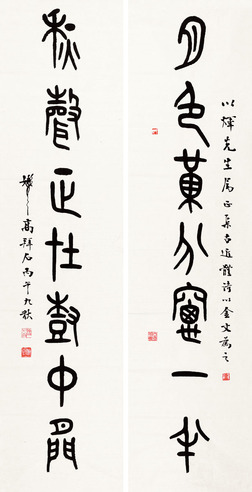 以煇先生屬正集古近體詩以金文為之
月色黃分窗一半
秋聲正在樹中間
高拜石丙午九秋